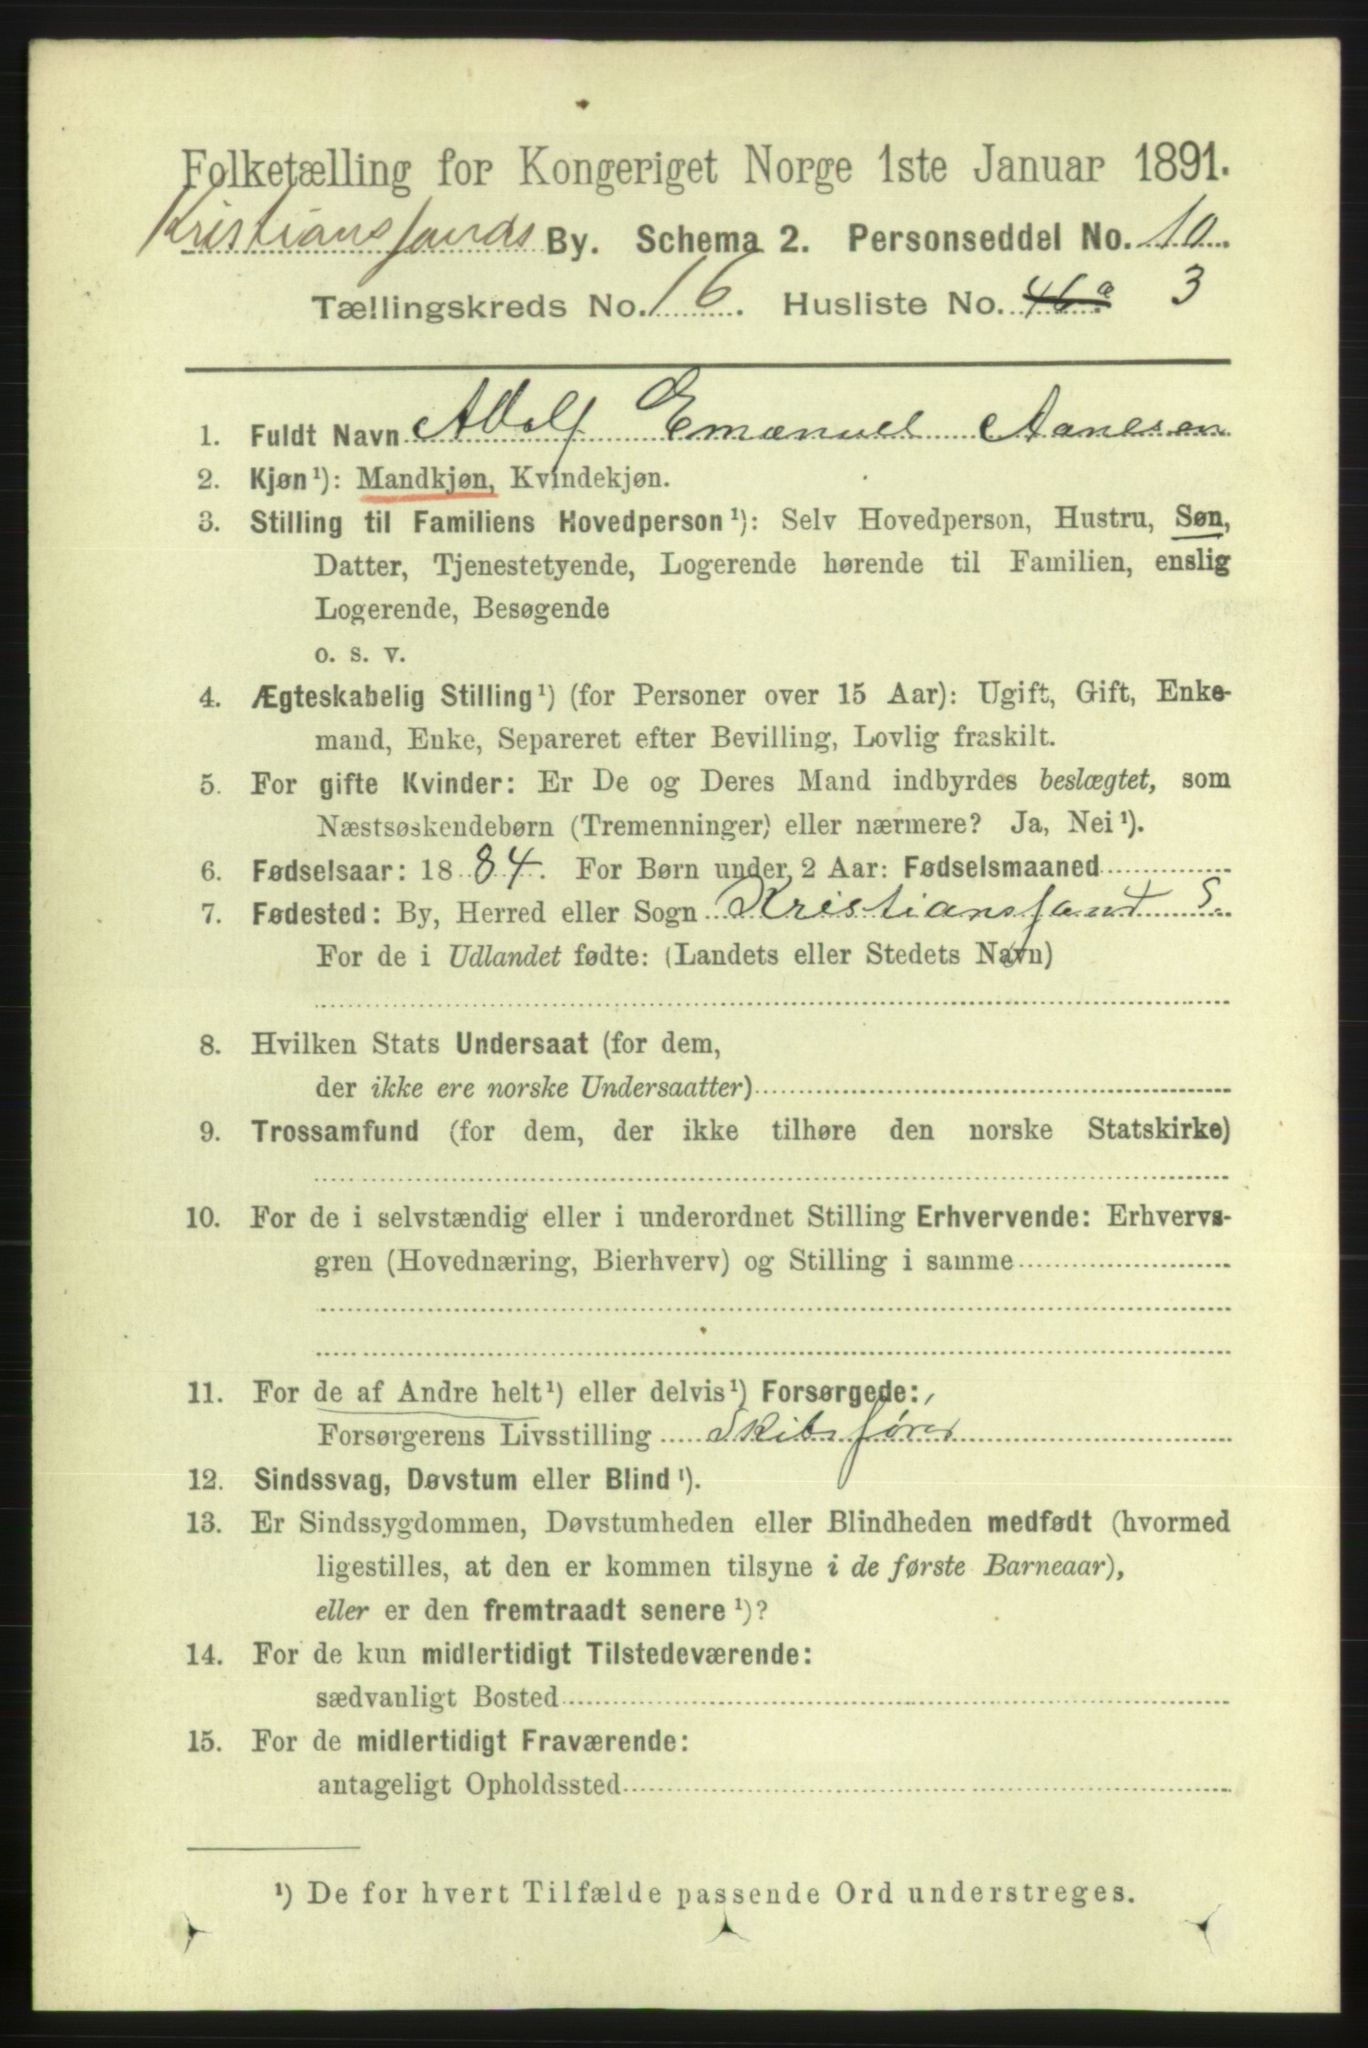 Folketælling for Kongeriget Norge 1ste Januar 1891.
Kristianssands By. Schema 2. Personseddel No. 10.
Tællingskreds No. 16. Husliste No. 46a 3
1. Fuldt Navn Adolf Emanuel Aanesen
2. Kjøn¹): Mandkjøn, Kvindekjøn.
3. Stilling til Familiens Hovedperson¹): Selv Hovedperson, Hustru, Søn,
Datter, Tjenestetyende, Logerende hørende til Familien, enslig
Logerende, Besøgende
o. s. v.
4. Ægteskabelig Stilling¹) (for Personer over 15 Aar): Ugift, Gift, Enke-
mand, Enke, Separeret efter Bevilling, Lovlig fraskilt.
5. For gifte Kvinder: Er De og Deres Mand indbyrdes beslægtet, som
Næstsøskendebørn (Tremenninger) eller nærmere? Ja, Nei¹).
6. Fødselsaar: 1884. For Børn under 2 Aar: Fødselsmaaned
7. Fødested: By, Herred eller Sogn Kristianssand S.
For de i Udlandet fødte: (Landets eller Stedets Navn)
8. Hvilken Stats Undersaat (for dem,
der ikke ere norske Undersaatter)
9. Trossamfund (for dem, der ikke tilhøre den norske Statskirke)
10. For de i selvstændig eller i underordnet Stilling Erhvervende: Erhvervs-
gren (Hovednæring, Bierhverv) og Stilling i samme
11. For de af Andre helt¹) eller delvis¹) Forsørgede:
Forsørgerens Livsstilling Skibsfører
12. Sindssvag, Døvstum eller Blind¹).
13. Er Sindssygdommen, Døvstumheden eller Blindheden medfødt (hvormed
ligestilles, at den er kommen tilsyne i de første Barneaar),
eller er den fremtraadt senere¹)?
14. For de kun midlertidigt Tilstedeværende:
sædvanligt Bosted
15. For de midlertidigt Fraværende:
antageligt Opholdssted
¹) De for hvert Tilfælde passende Ord understreges.